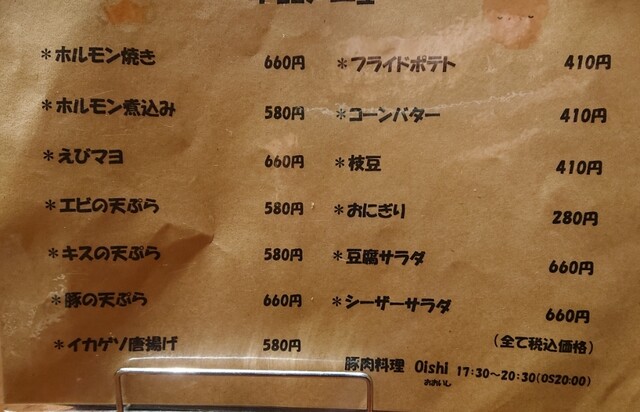 ＊ホルモン焼き 660円
＊ホルモン煮込み 580円
＊えびマヨ 660円
＊エビの天ぷら 580円
＊キスの天ぷら 580円
＊豚の天ぷら 660円
＊イカゲソ唐揚げ 580円
＊フライドポテト 410円
＊コーンバター 410円
＊枝豆 410円
＊おにぎり 280円
＊豆腐サラダ 660円
＊シーザーサラダ 660円
(全て税込価格)
豚肉料理 Oishi 17:30～20:30(OS20:00)
おおいし